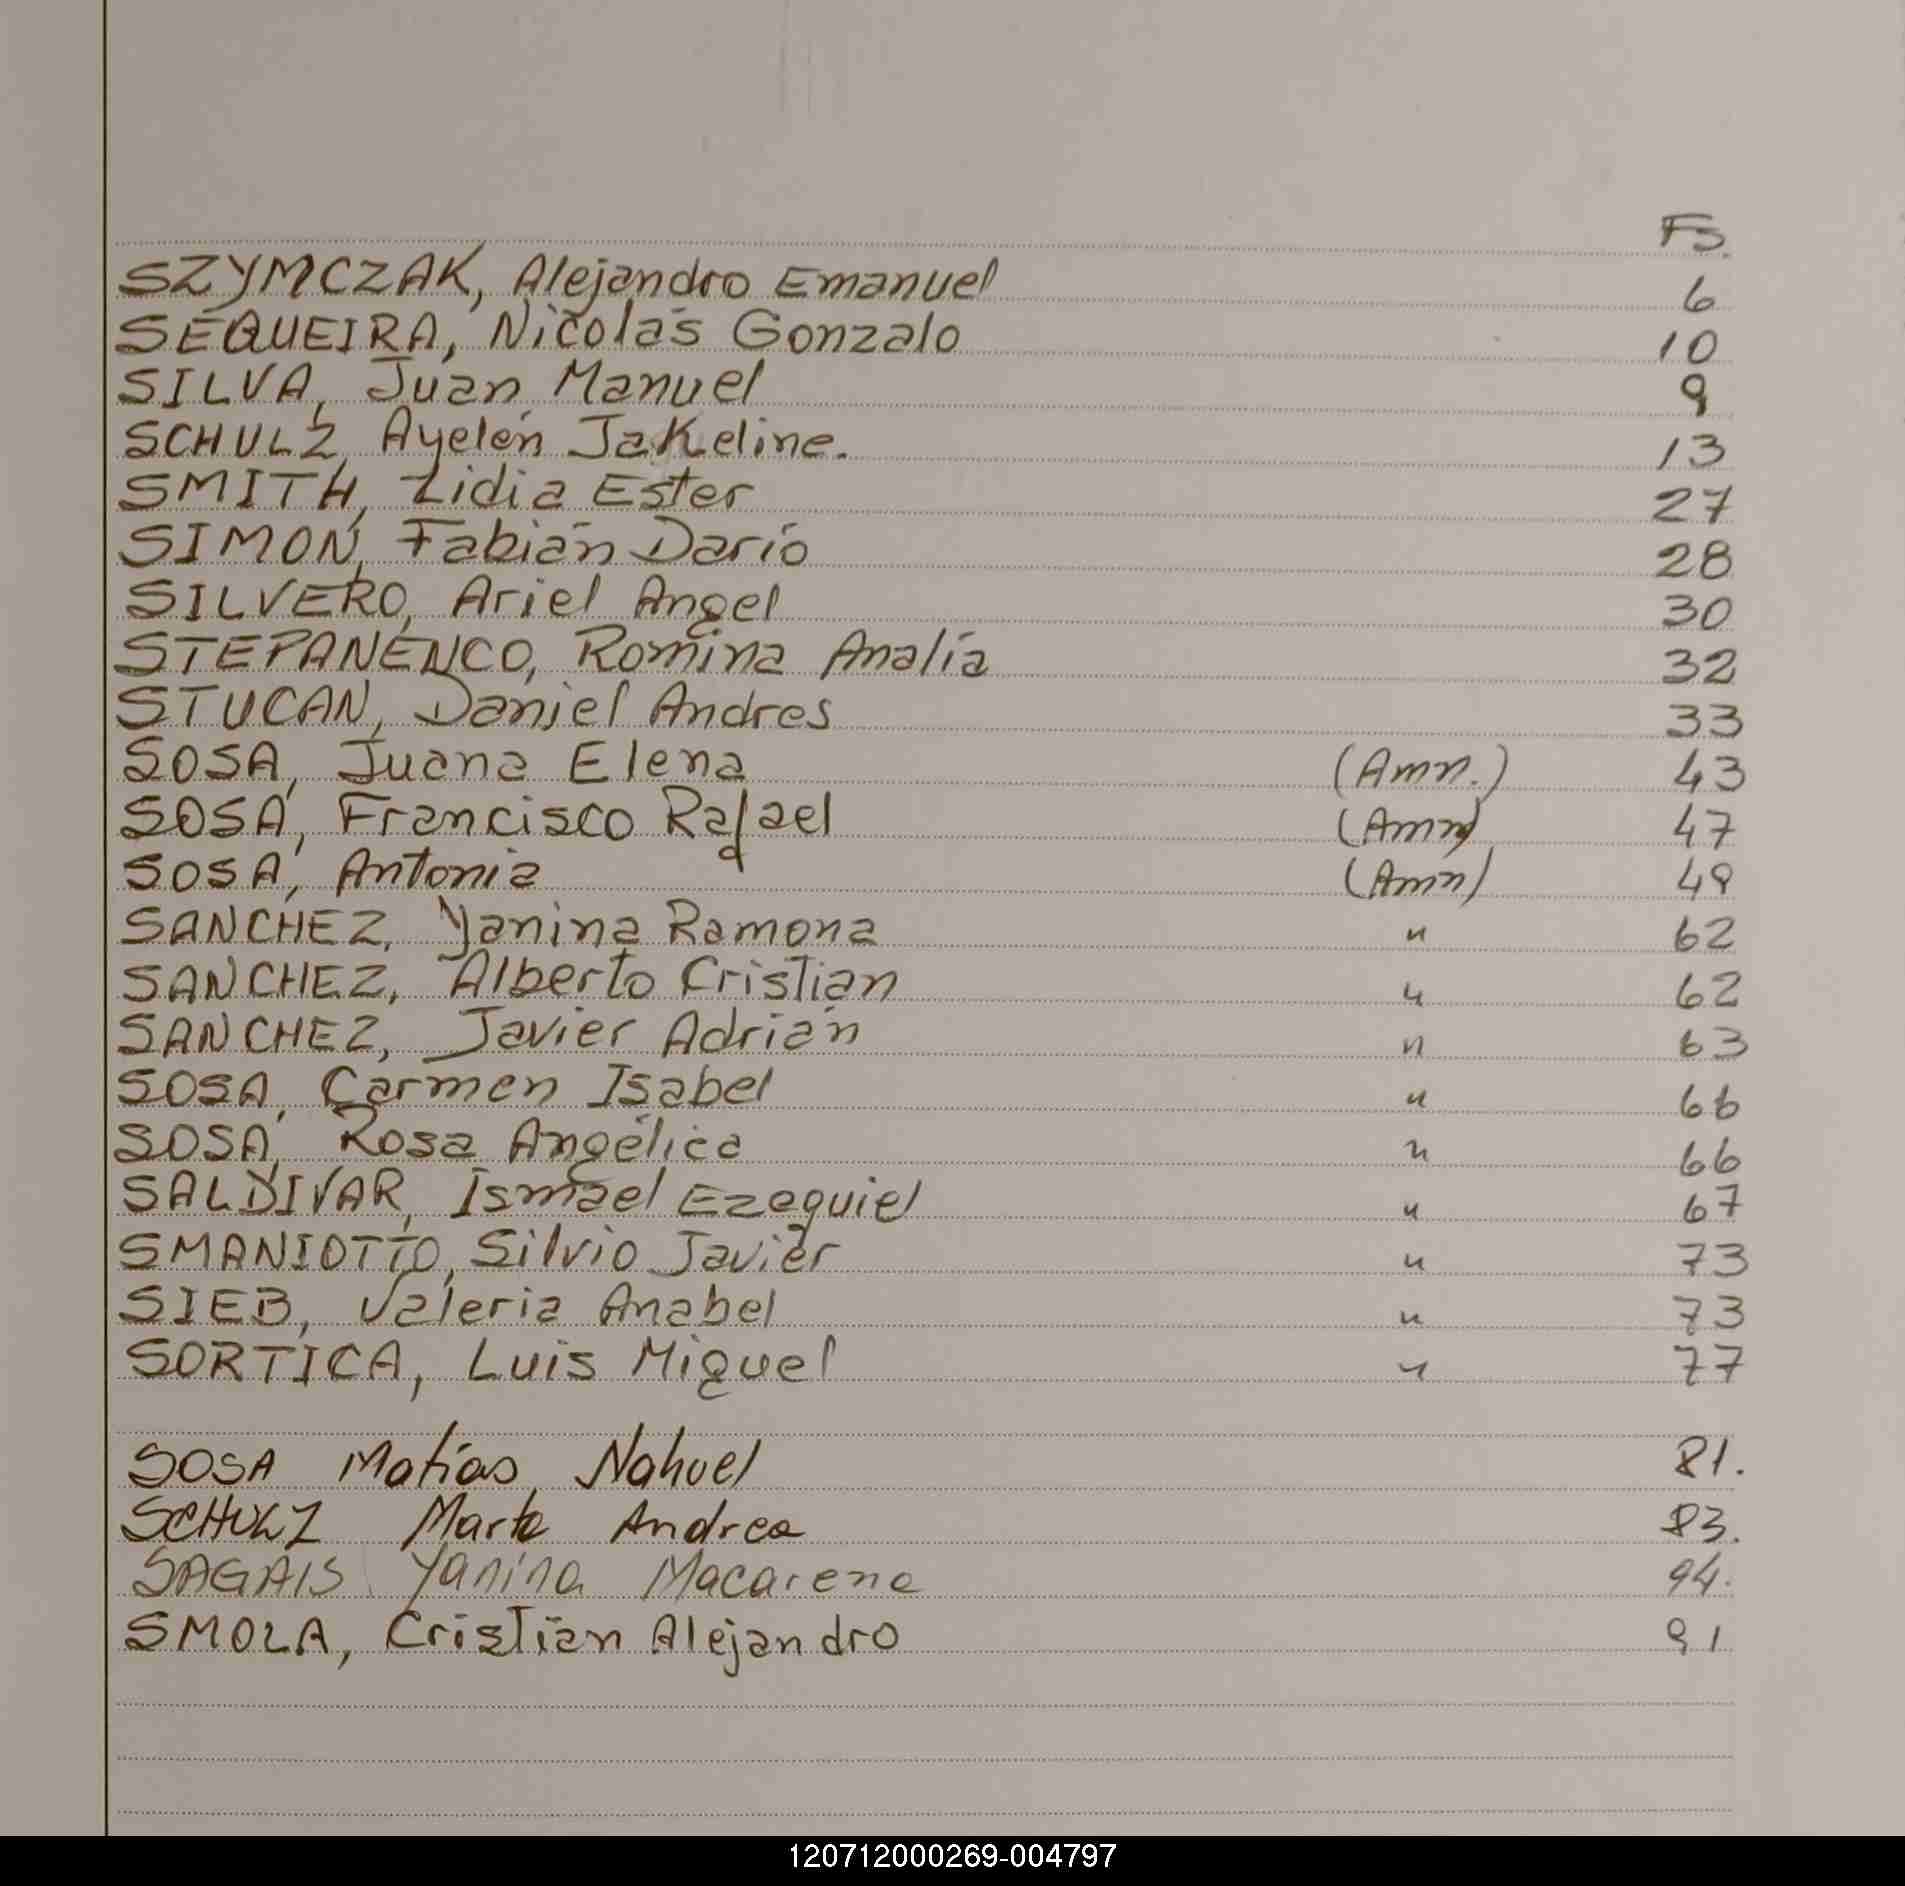 Fs.
SZYMCZAK, Alejandro Emanuel 6
SEQUEIRA, Nicolás Gonzalo 10
SILVA, Juan Manuel 9
SCHULZ, Ayelén JaKeline. 13
SMITH, Lidia Ester 27
SIMON, Fabián Darío 28
SILVERO, Ariel Angel 30
STEPANENCO, Romina Analía 32
STUCAN, Daniel Andres 33
SOSA, Juana Elena (Amn.) 43
SOSA, Francisco Rafael (Amn) 47
SOSA, Antonia (Amn) 49
SANCHEZ, Yanina Ramona " 62
SANCHEZ, Alberto Cristian " 62
SANCHEZ, Javier Adrián " 63
SOSA, Carmen Isabel " 66
SOSA, Rosa Angélica " 66
SALDIVAR, Ismael Ezequiel " 67
SMANIOTTO, Silvio Javier " 73
SIEB, Valeria Anabel " 73
SORTICA, Luis Miguel " 77
SOSA Matías Nahuel 81.
SCHULZ Marta Andrea 83.
SAGAIS Yanina Macarena 94.
SMOLA, Cristian Alejandro 91
120712000269-004797